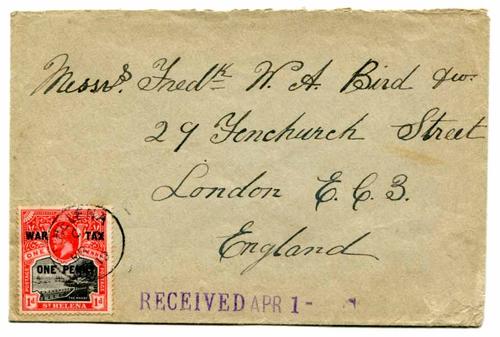 Messrs. Fredk W. A. Bird & Co.
29 Fenchurch Street
London E.C.3.
England
WAR TAX
ONE PENNY
1d 1d
ST HELENA
RECEIVED APR 1-